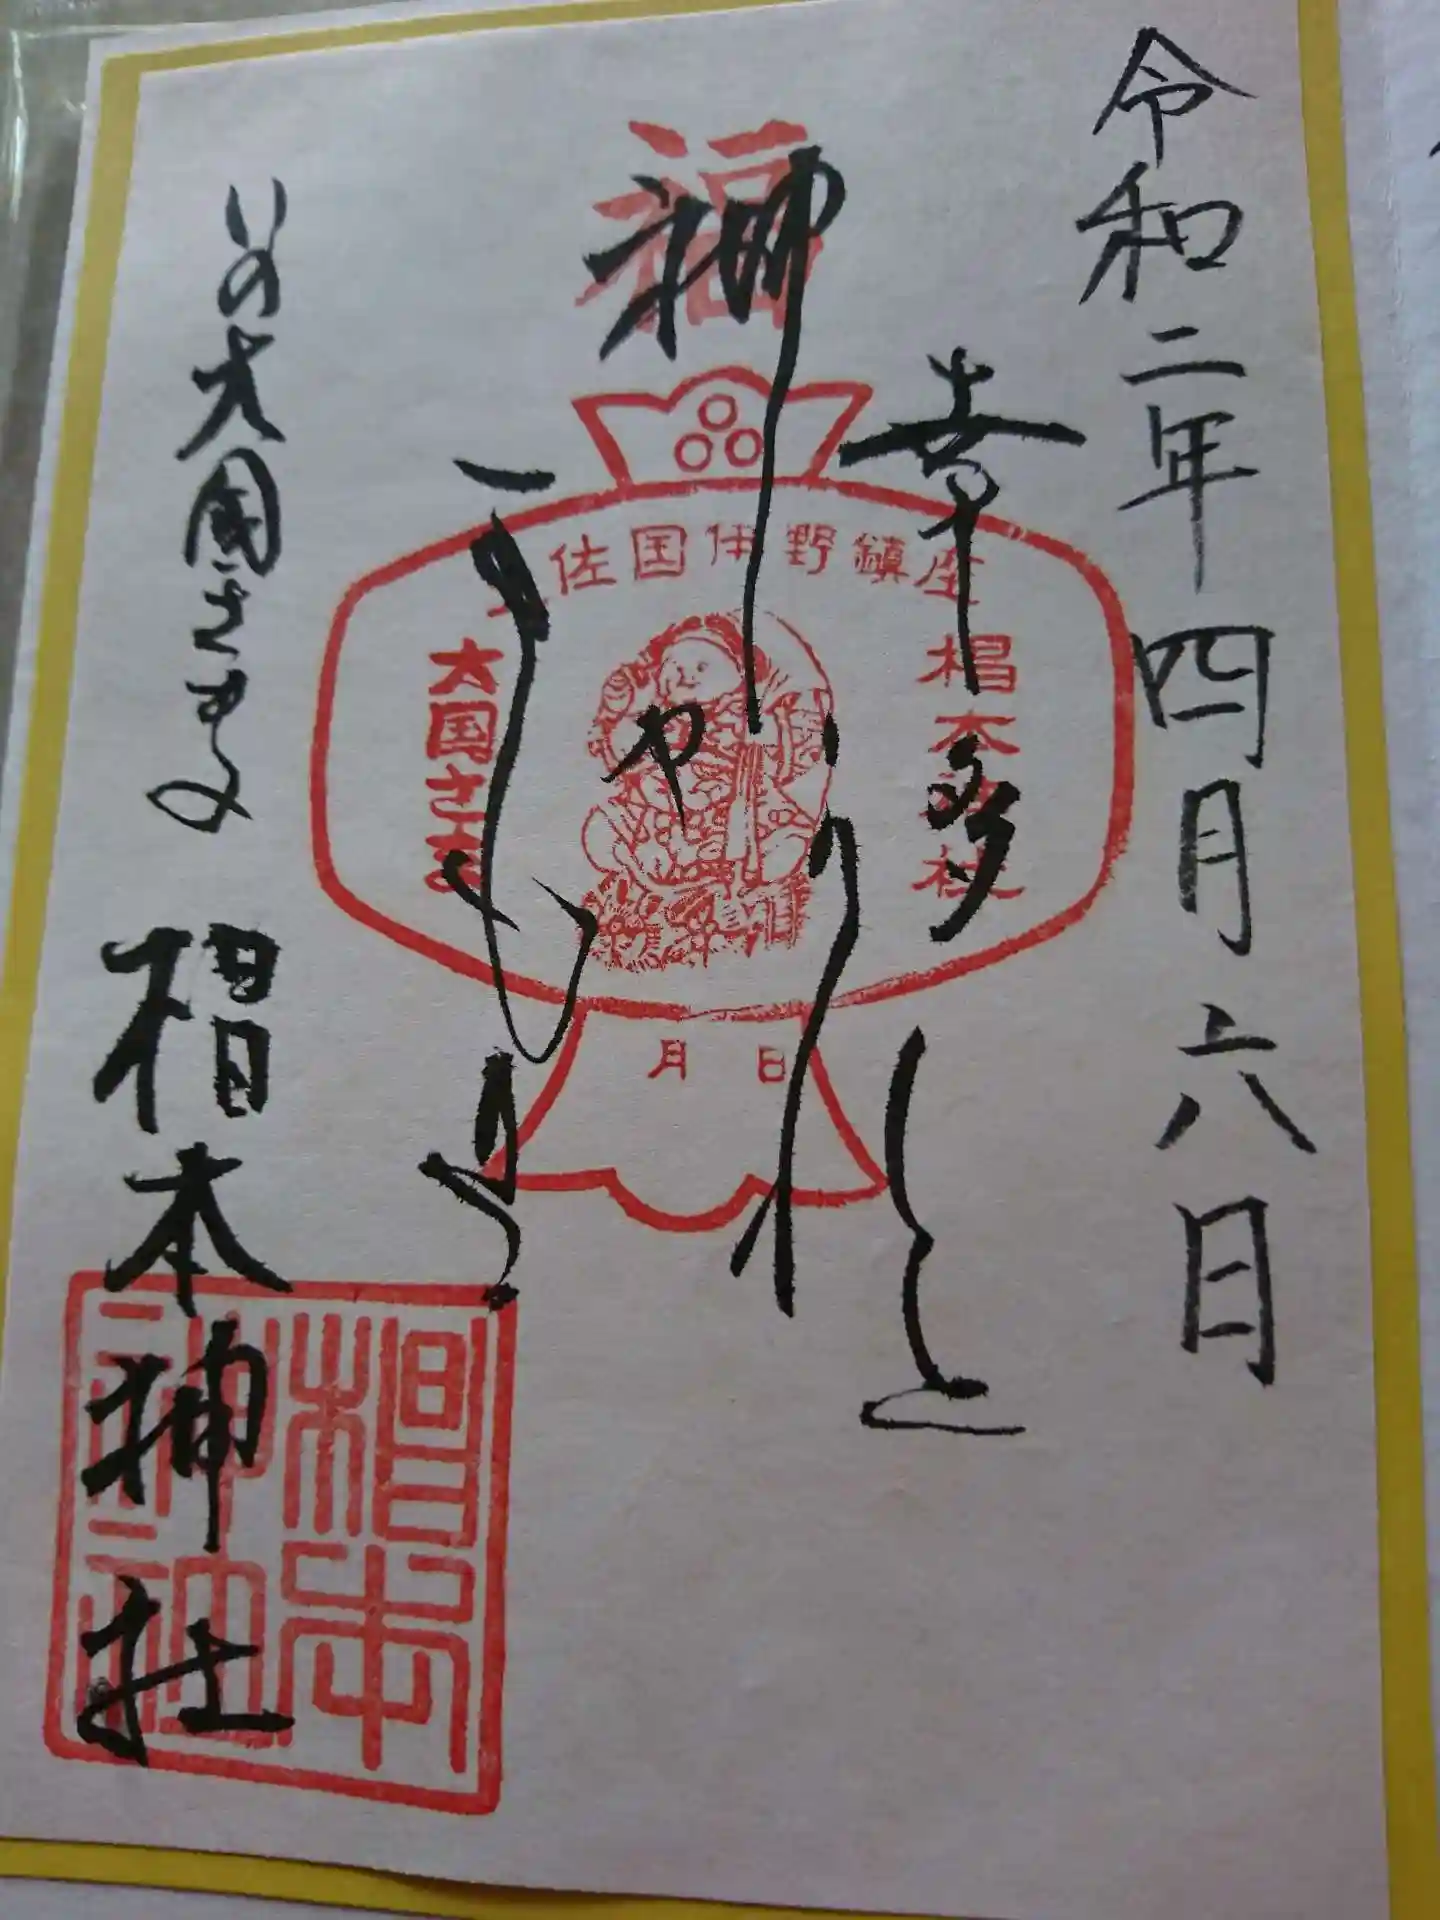 令和二年四月六日
幸
多
かれと
神や
いのる
福
土佐国伊野鎮座
椙本神社
大国さま
月 日
いの大国さま
椙本神社
椙本
神社